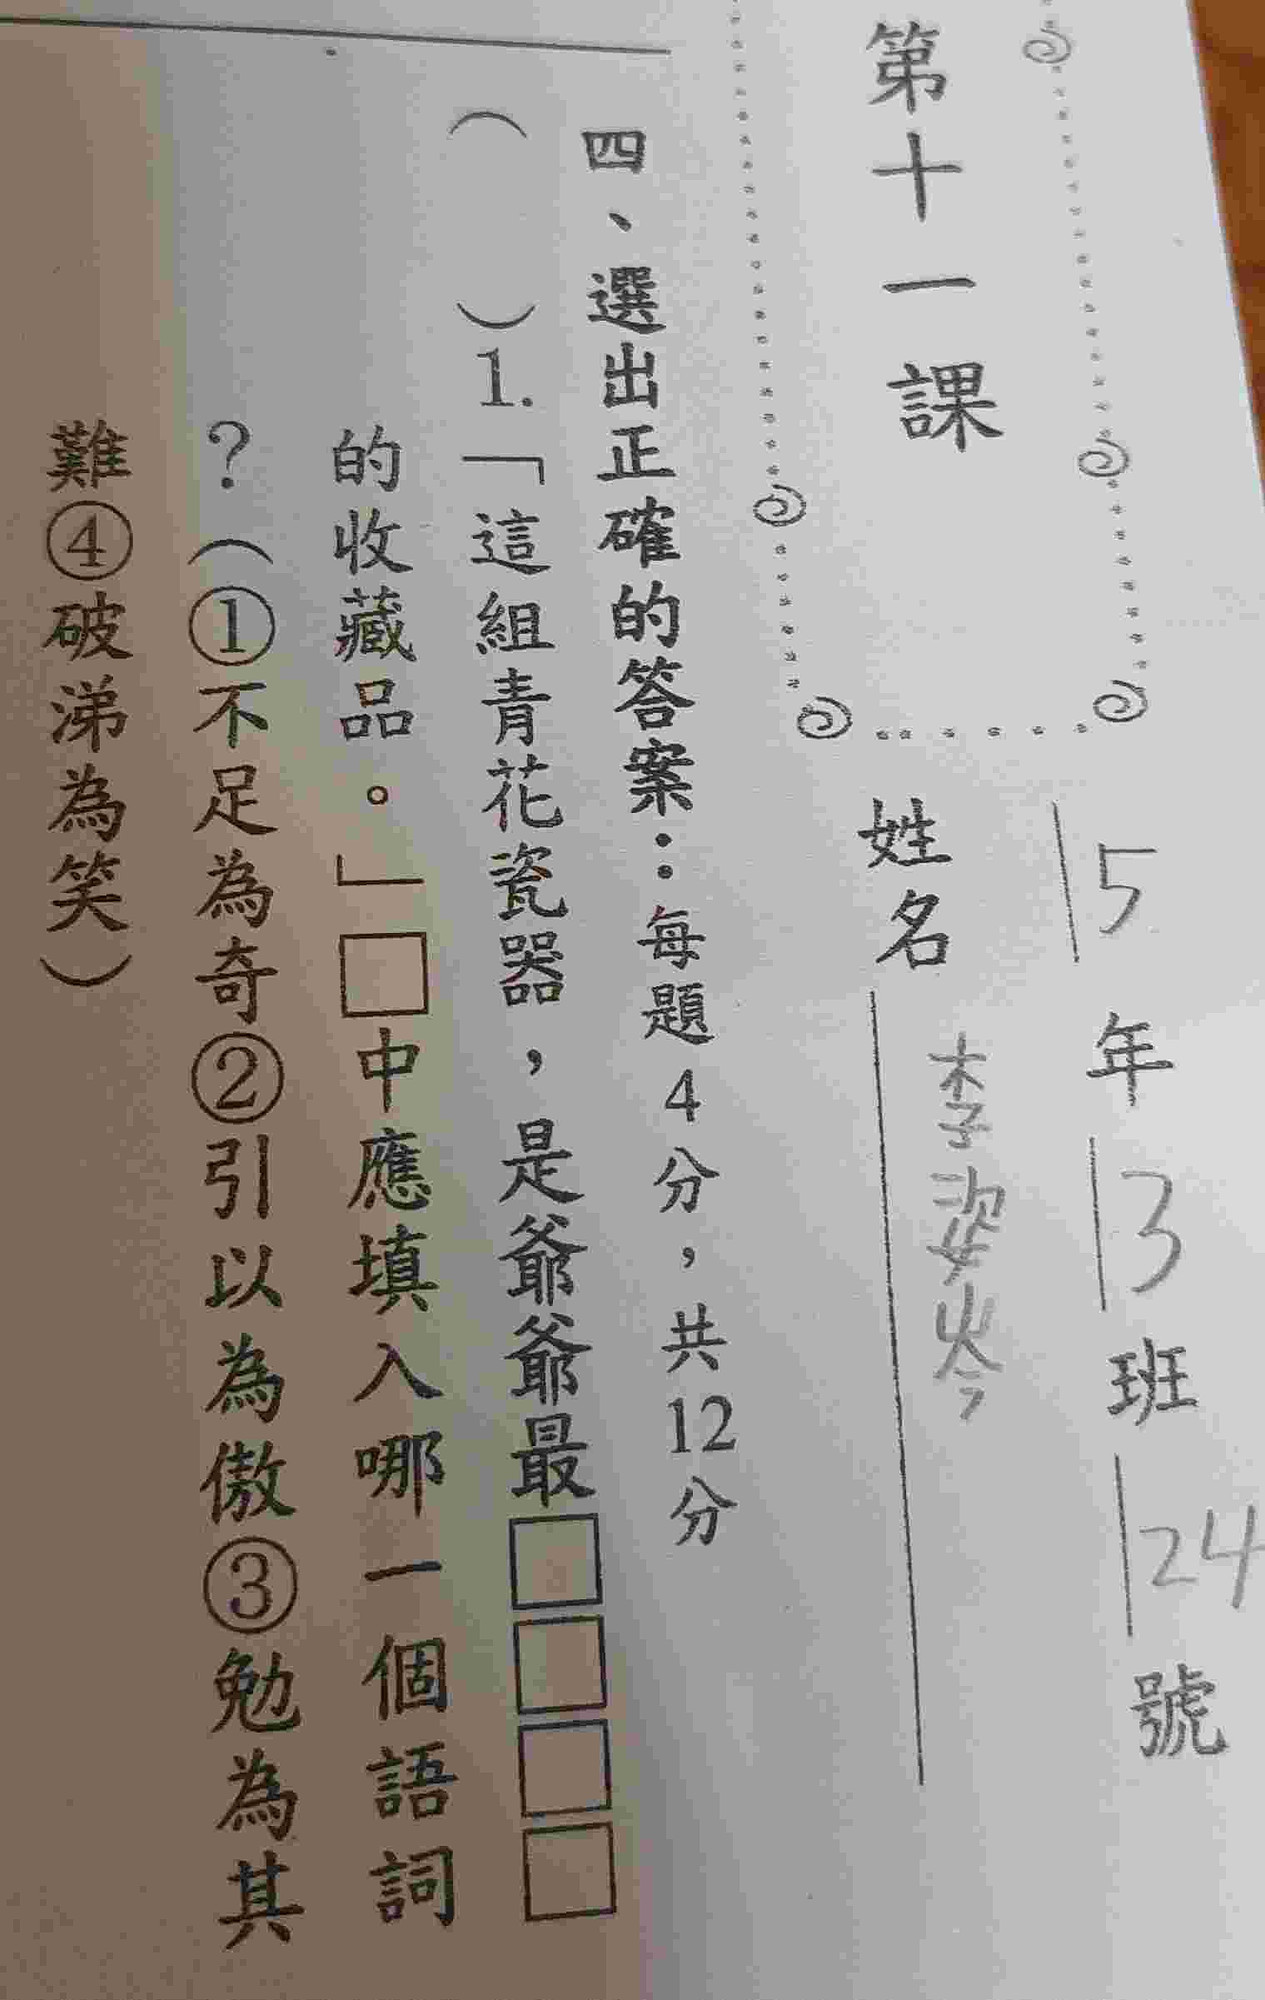 第十一課
5年3班24號
姓名 李姿伶
四、選出正確的答案：每題4分，共12分
（　）1.「這組青花瓷器，是爺爺最□□□□
的收藏品。」□中應填入哪一個語詞
？（①不足為奇②引以為傲③勉為其
難④破涕為笑）